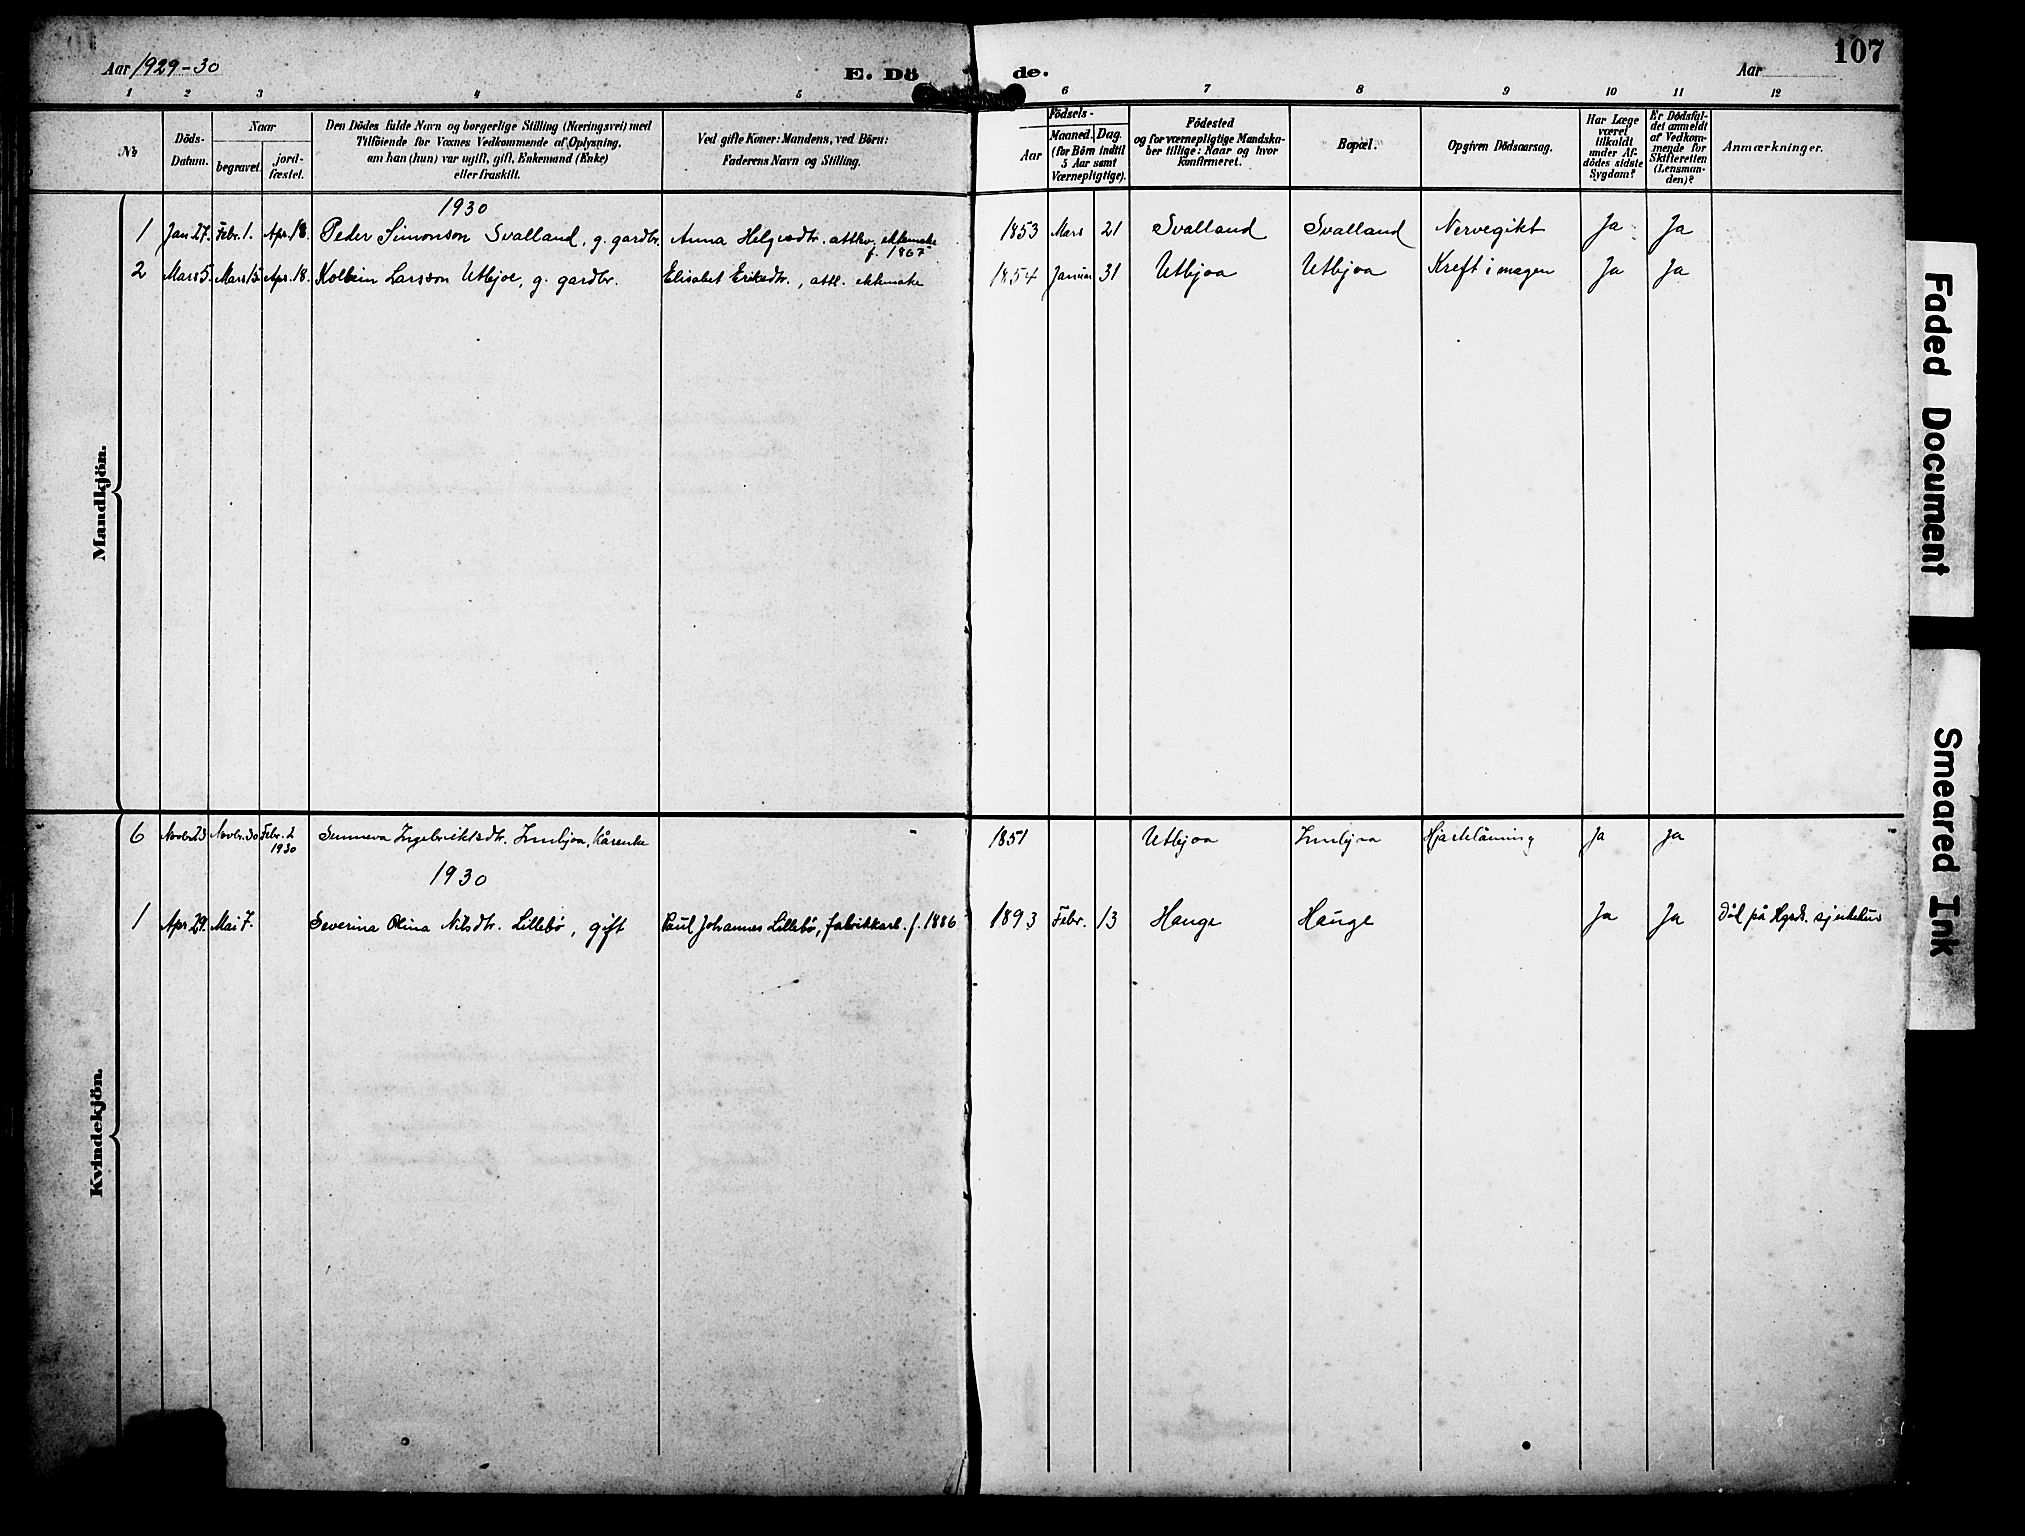 Aar 1929-30
E. Dö de.
Aar
107
1 2 3 4 5 6 7 8 9 10 11 12
No
Döds-
Datum.
Naar
begravet.
jord-
fæstet.
Den Dödes fulde Navn og borgerlige Stilling (Næringsvei) med
Tilföiende for Voxnes Vedkommende af Oplysning,
om han (hun) var ugift, gift, Enkemand (Enke)
eller fraskilt.
Ved gifte Koner: Mandens, ved Börn:
Faderens Navn og Stilling.
Födsels-
Aar
Maaned. Dag.
(for Börn indtil
5 Aar samt
Værnepligtige).
Födested
og for værnepligtige Mandska-
ber tillige: Naar og hvor
konfirmeret.
Bopæl.
Opgiven Dödsaarsag.
Har Læge
været
tilkaldt
under Af-
dödes sidste
Sygdom?
Er Dödsfal-
det anmeldt
af Vedkom-
mende for
Skifteretten
(Lensman-
den)?
Anmærkninger.
Mandkjön.
1930
1 Jan 27. Febr. 1. Apr. 18. Peder Simonson Svalland, g. gardbr. Anna Helgesdtr. attlev. ektemake f. 1867 1853 Mars 21 Svalland Svalland Nervegikt Ja Ja
2 Mars 5. Mars 15 Apr. 18. Kolbein Larsson Utbjoe, g. gardbr. Elisabet Eriksdtr., attl. ektemake 1854 Januar 31 Utbjoa Utbjoa Kreft i magen Ja Ja
Kvindekjön.
6 Novbr. 23 Novbr. 30 Febr. 2 1930 Sunneva Ingebriktsdtr. Innbjoa, kårenke 1851 Utbjoa Innbjoa Hjartelåming Ja Ja
1930
1 Apr 29. Mai 7. Severina Olina Nilsdtr. Lillebø, gift Paul Johannes Lillebø, fabrikkarb. f. 1886 1893 Febr. 13 Hauge Hauge Ja Ja Död på Hgsds. sjukehus
Faded Document
Smeared Ink